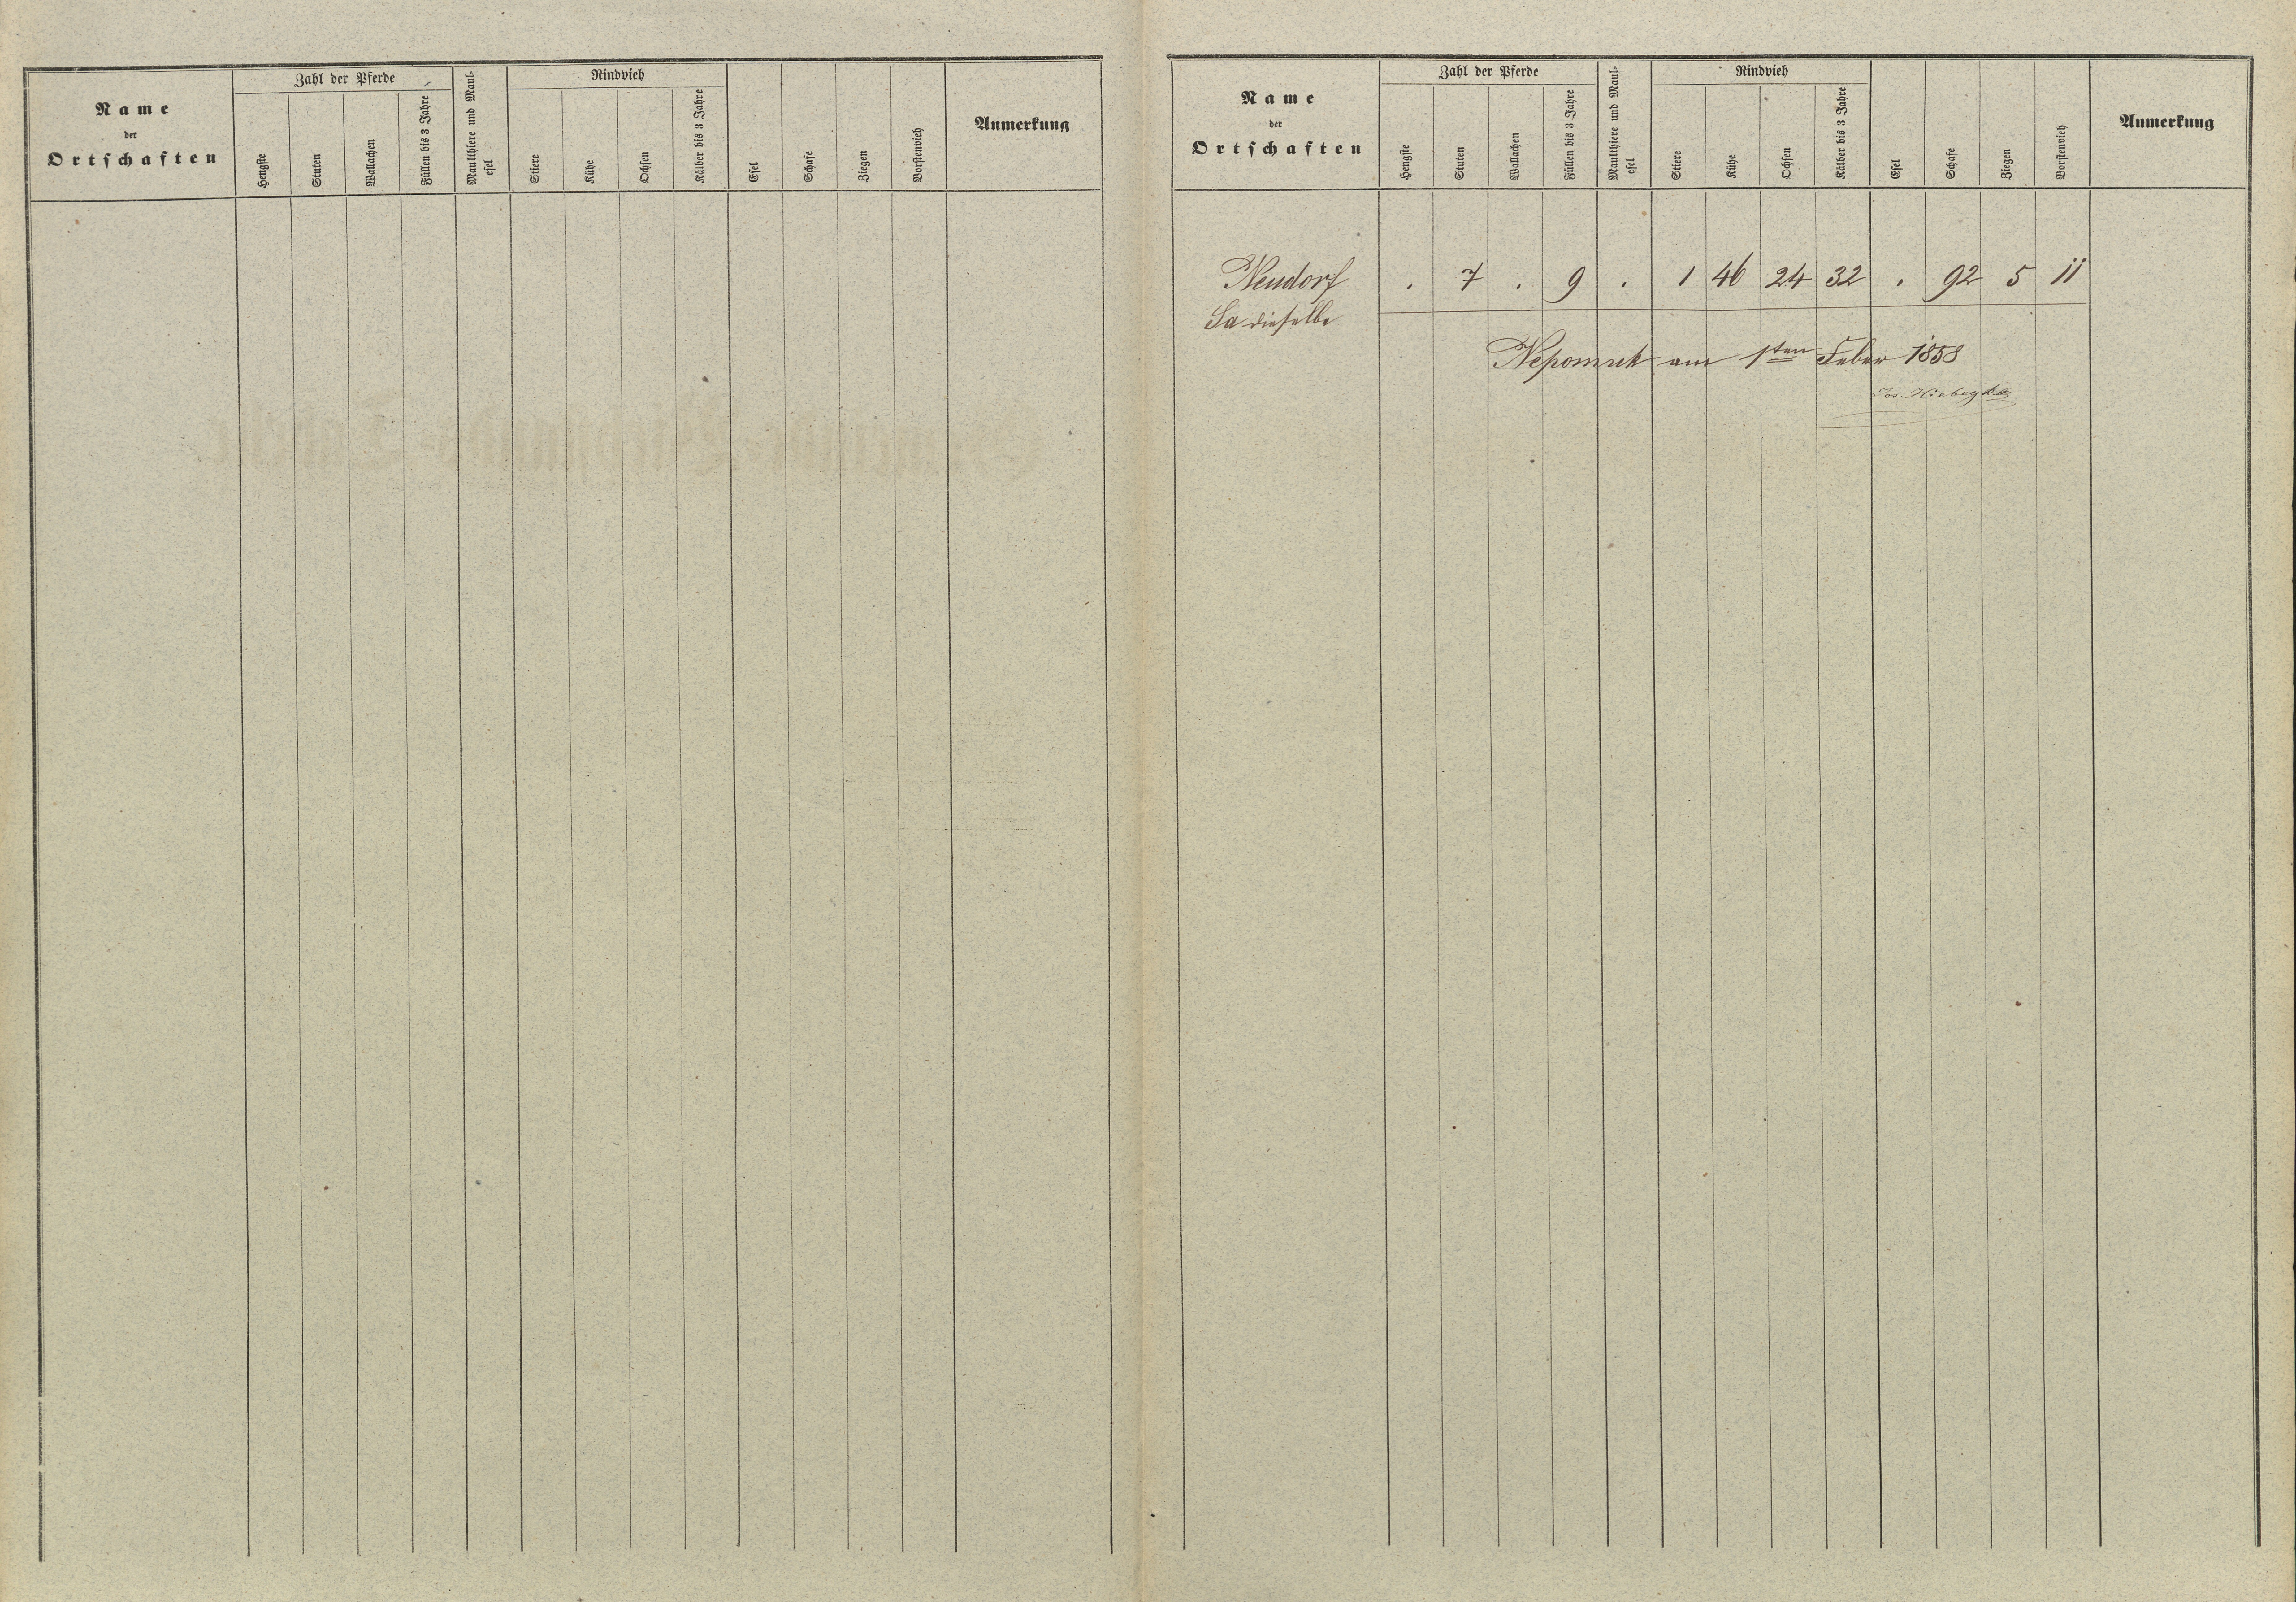 Name
der
Ortschaften
Zahl der Pferde
Hengste
Stuten
Wallachen
Füllen bis 3 Jahre
Maulthiere und Maul-
esel
Rindvieh
Stiere
Kühe
Ochsen
Kälber bis 3 Jahre
Esel
Schafe
Ziegen
Borstenvieh
Anmerkung
Name
der
Ortschaften
Zahl der Pferde
Hengste
Stuten
Wallachen
Füllen bis 3 Jahre
Maulthiere und Maul-
esel
Rindvieh
Stiere
Kühe
Ochsen
Kälber bis 3 Jahre
Esel
Schafe
Ziegen
Borstenvieh
Anmerkung
Neudorf . 7 . 9 . 1 46 24 32 . 92 5 11
Sa dieselbe
Nepomuk am 1ten Feber 1858